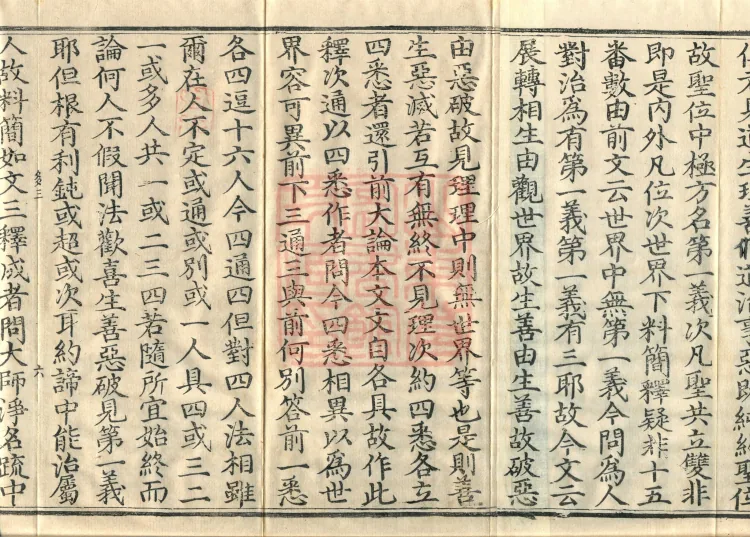 故聖位中極方名第一義次凡聖共立雙非
即是內外凡位次世界下料簡釋疑非十五
番數由前文云世界中無第一義今問爲人
對治爲有第一義第一義有三耶故今文云
展轉相生由觀世界故生善由生善故破惡
由惡破故見理理中則無世界等也是則善
生惡滅若互有無終不見理次約四悉各立
四悉者還引前大論本文文自各具故作此
釋次通以四悉作者問今四悉相異以爲世
界容可異前下三通三與前何別答前一悉
各四逗十六人今四通四但對四人法相雖
爾在人不定或通或別或一人具四或三二
一或多人共一或二三四若隨所宜始終而
論何人不假聞法歡喜生善惡破見第一義
耶但根有利鈍或超或次耳約諦中能治屬
三 六
人故料簡如文三釋成者問大師淨名疏中